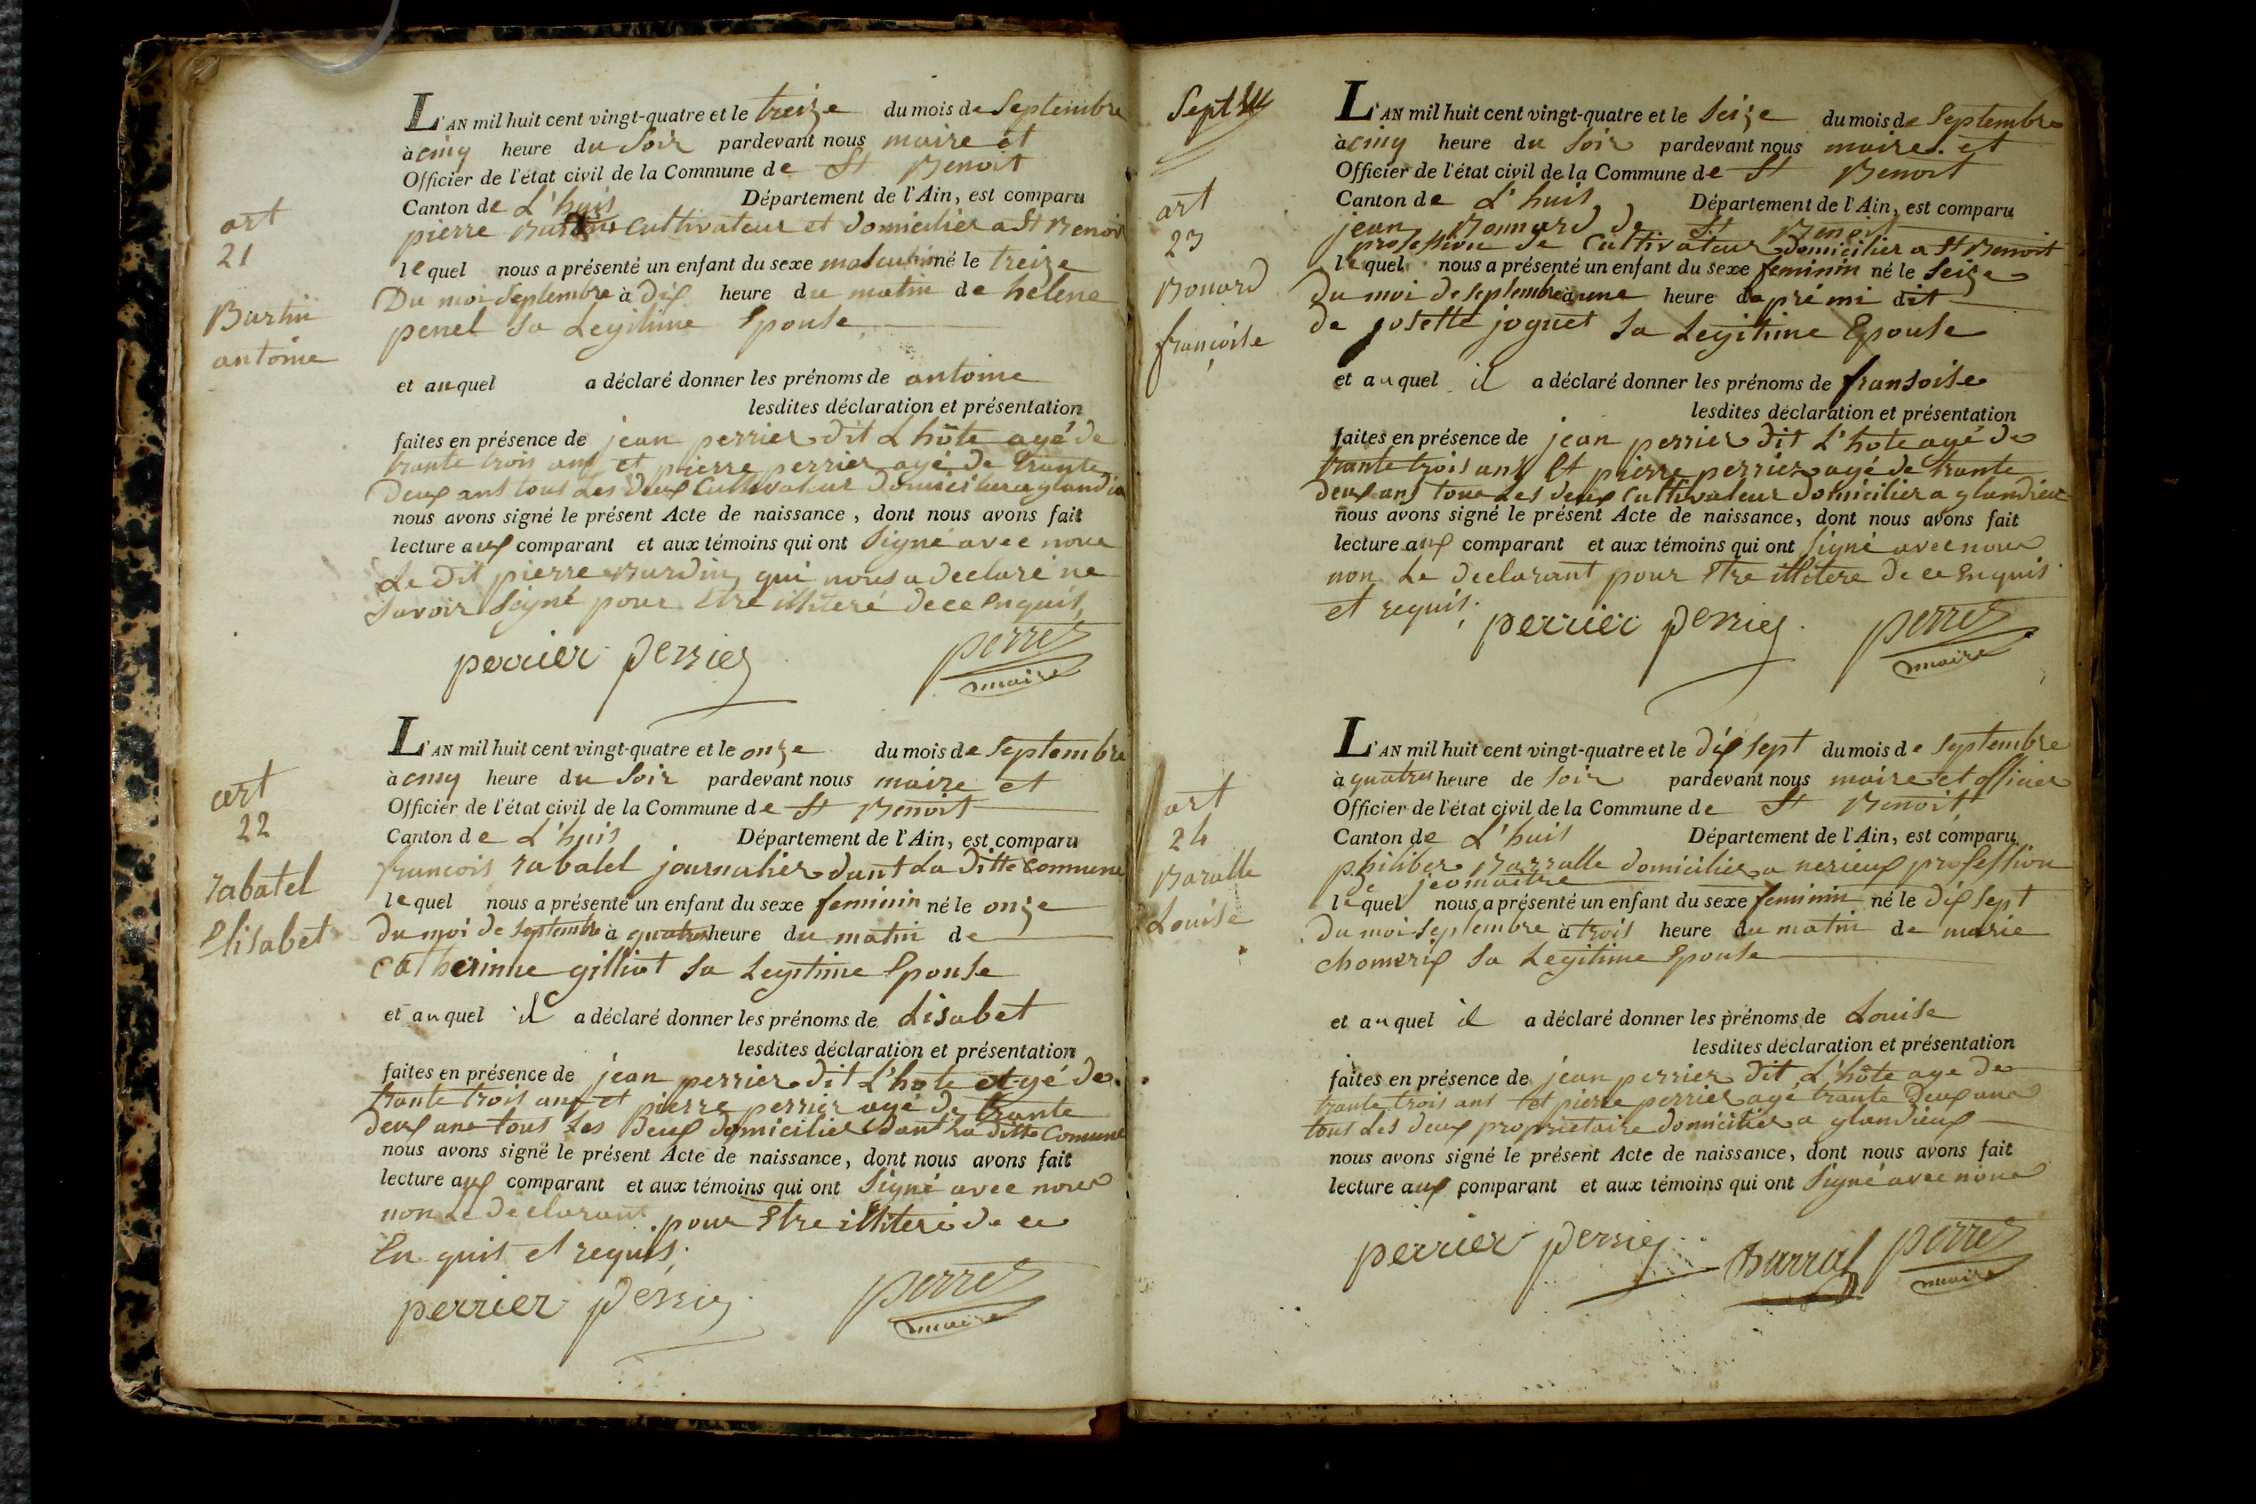 art
21
Burtin
antoine
L'AN mil huit cent vingt-quatre et le treize du mois de Septembre
à cinq heure du Soir pardevant nous maire et
Officier de l'état civil de la Commune de St Benoit
Canton de L'huis Département de l'Ain, est comparu
pierre Cultivateur et domicilier a St Benoit
lequel nous a présenté un enfant du sexe masculin né le treize
Du moi Septembre à dix heure du matin de helene
penel Sa Legitime Epouse
et auquel a déclaré donner les prénoms de antoine
lesdites déclaration et présentation
faites en présence de jean perrier dit L'hôte agé de
trante trois ans et pierre perrier agé de trante
Deux ans tous Les deux Cultivateur Domicilier a glandieu
nous avons signé le présent Acte de naissance, dont nous avons fait
lecture aux comparant et aux témoins qui ont Signé avec nous
Le Dit pierre Burdin qui nous a declaré ne
Savoir Signé pour Etre illiteré de ce Enquis,
perrier perrier perret
maire
art
22
rabatel
Elisabet
L'AN mil huit cent vingt-quatre et le onze du mois de Septembre
à cinq heure du Soir pardevant nous maire et
Officier de l'état civil de la Commune de St Benoit
Canton de L'huis Département de l'Ain, est comparu
francois rabatel journalier dant La Ditte Commune
lequel nous a présenté un enfant du sexe feminin né le onze
du moi de Septembre à quatre heure du matin de
Catherinne gilliot Sa Legitime Epouse
et auquel il a déclaré donner les prénoms de Lisabet
lesdites déclaration et présentation
faites en présence de jean perrier dit L'hote agé de
trante trois ans et pierre perrier agé de trante
deux ans tous Les Deux domicilier dant La ditte Comune
nous avons signé le présent Acte de naissance, dont nous avons fait
lecture aux comparant et aux témoins qui ont Signé avec nous
non Le declarant pour Etre illiteré de ce
En quis et requis;
perrier perrier perret
maire
Sept
art
23
Bonard
françoise
L'AN mil huit cent vingt-quatre et le Seize du mois de Septembre
à cinq heure du Soir pardevant nous maire et
Officier de l'état civil de la Commune de St Benoit
Canton de L'huis Département de l'Ain, est comparu
jean Bonnard de St Benoit
profession de Cultivateur domicilier a St Benoit
lequel nous a présenté un enfant du sexe feminin né le Seize
Du moi de Septembre à une heure daprémi dit
de josette joguet Sa Legitime Epouse
et auquel il a déclaré donner les prénoms de fransoise
lesdites déclaration et présentation
faites en présence de jean perrier dit L'hote agé de
trante trois ans Et pierre perrier agé de trante
deux ans tous Les deux Cultivateur domicilier a glandieux
nous avons signé le présent Acte de naissance, dont nous avons fait
lecture aux comparant et aux témoins qui ont Signé avec nous
non Le declarant pour Etre illitere de ce Enquis
et requis;
perrier perrier perret
maire
art
24
Baralle
Louise
L'AN mil huit cent vingt-quatre et le dix sept du mois de Septembre
à quatre heure de Soir pardevant nous maire et officier
Officier de l'état civil de la Commune de St Benoit
Canton de L'huis Département de l'Ain, est comparu
philiber Barralle domicilier a nerieux profession
de jeomaitre
lequel nous a présenté un enfant du sexe feminin né le dix sept
Du moi Septembre à trois heure du matin de marie
chomerix Sa Legitime Epouse
et auquel il a déclaré donner les prénoms de Louise
lesdites déclaration et présentation
faites en présence de jean perrier dit L'hôte age de
trante trois ans et pierre perrier agé trante Deux ans
tous Les deux proprietaire domicilier a glandieux
nous avons signé le présent Acte de naissance, dont nous avons fait
lecture aux comparant et aux témoins qui ont Signé avec nous
perrier perrier Barral perret
maire